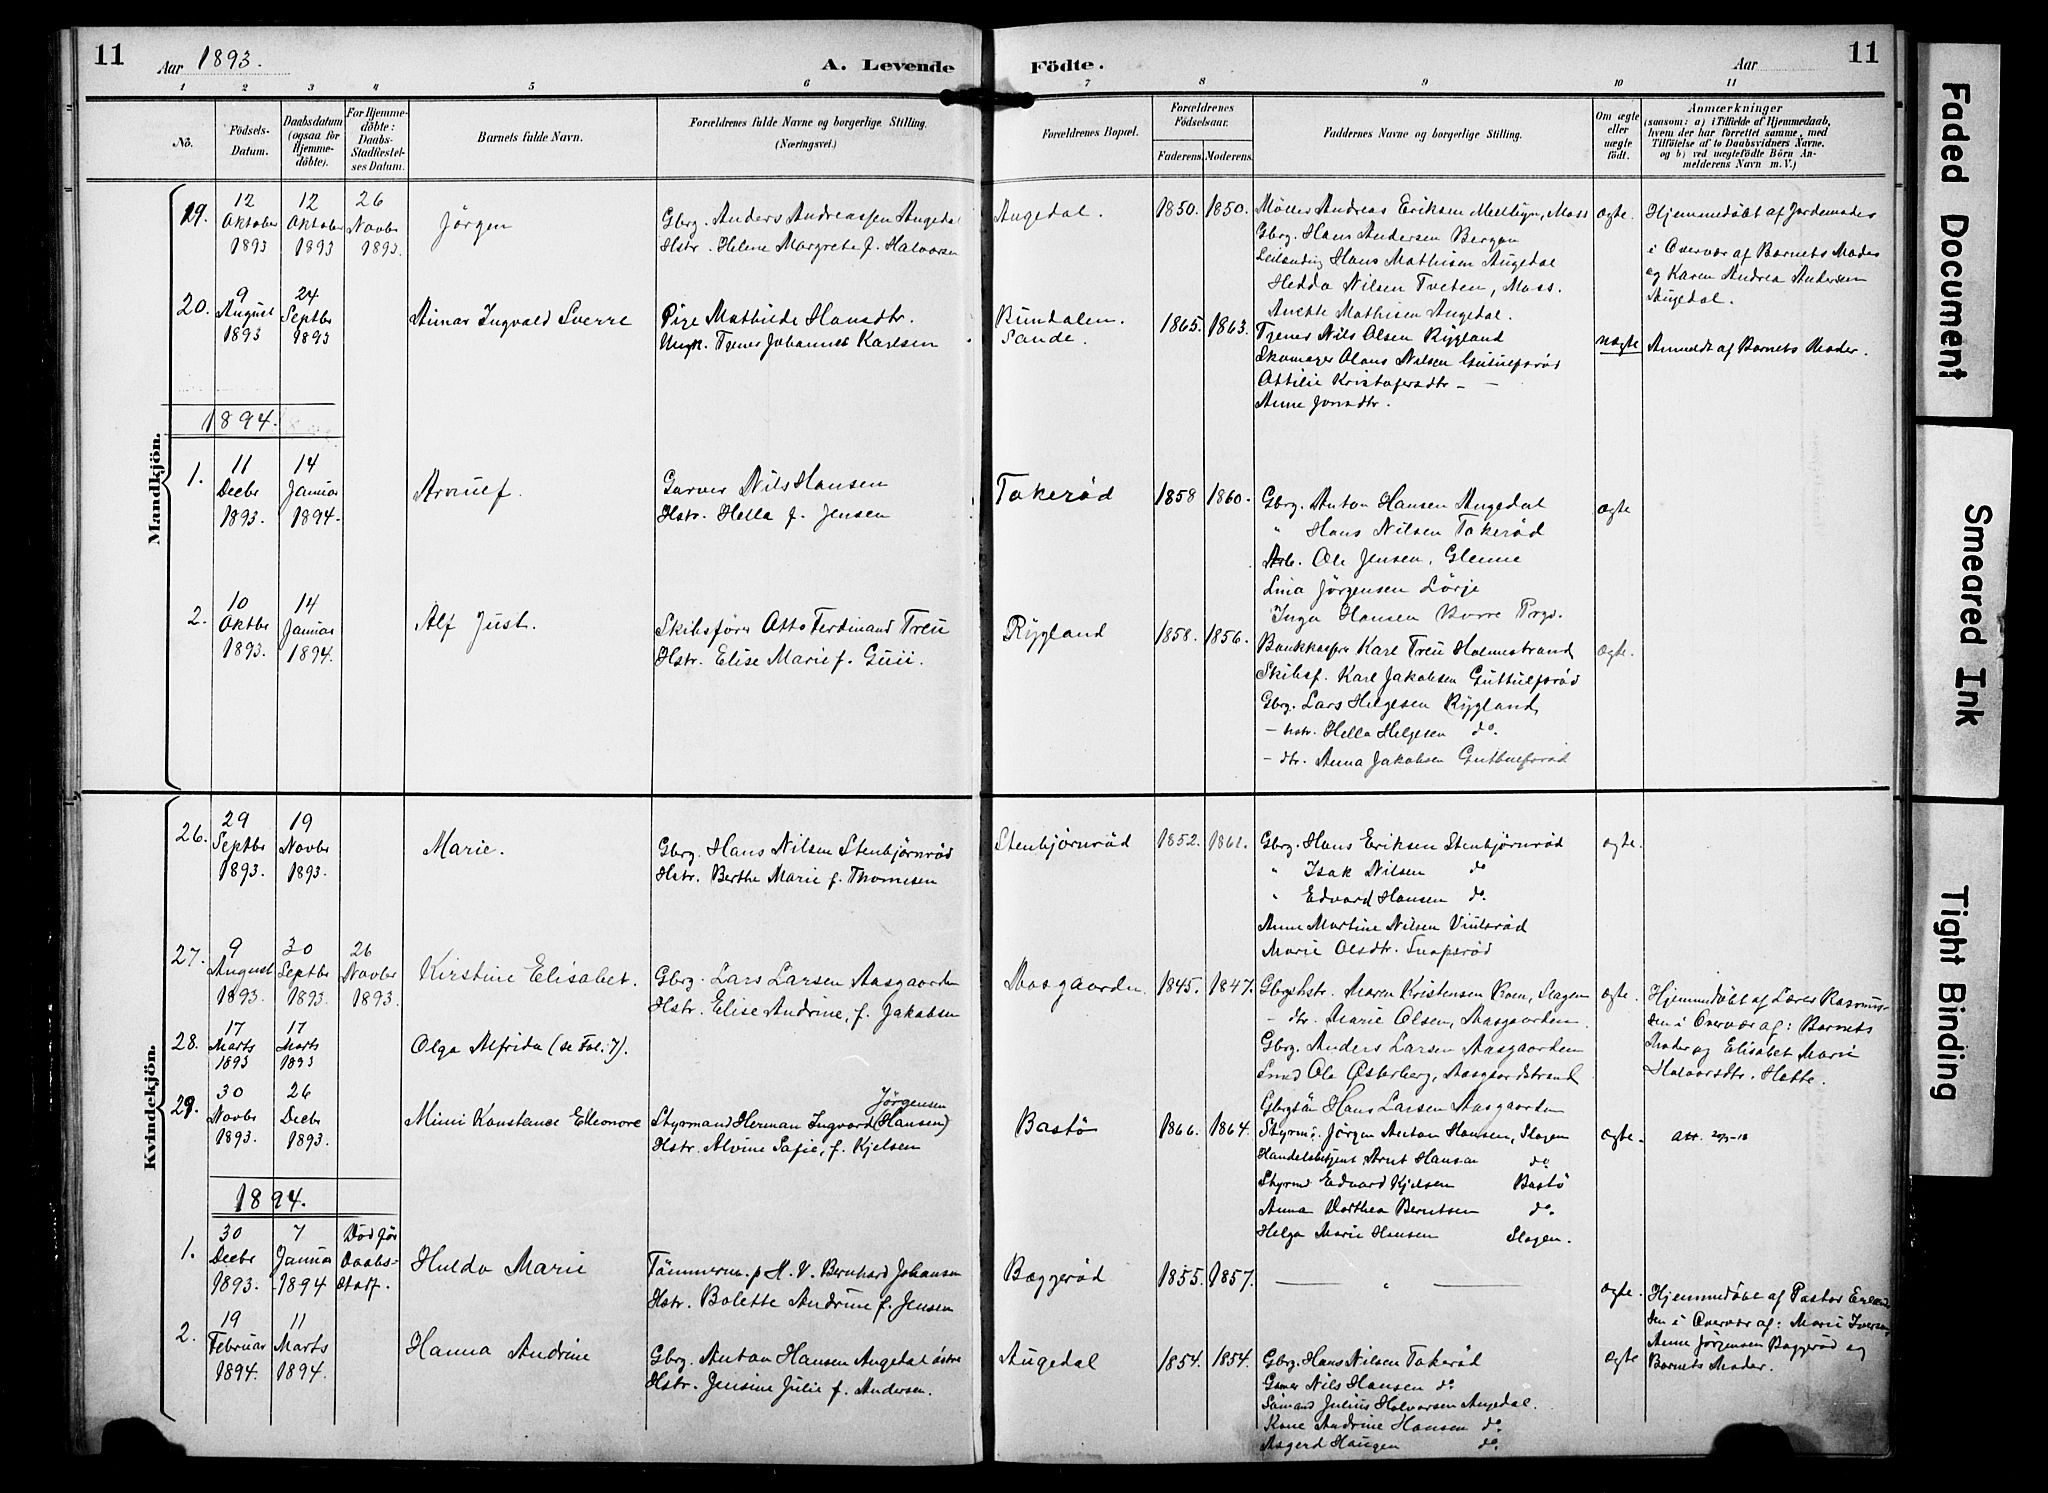 11
Aar 1893.
A. Levende
Födte.
Aar
11
1 2 3 4 5 6 7 8 9 10 11
No.
Födsels-
Datum.
Daabsdatum
(ogsaa for
Hjemme-
döbte).
For Hjemme-
döbte:
Daabs-
Stadfæstel-
ses Datum.
Barnets fulde Navn.
Forældrenes fulde Navne og borgerlige Stilling.
(Næringsvei.)
Forældrenes Bopæl.
Forældrenes
Födselsaar.
Faderens.
Moderens.
Faddernes Navne og borgerlige Stilling.
Om ægte
eller
uægte
födt.
Anmærkninger
(saasom: a) i Tilfælde af Hjemmedaab,
hvem der har forrettet samme, med
Tilföielse af to Daabsvidners Navne,
og b) ved uægtefödte Börn An-
melderens Navn m. V.)
Mandkjön.
19.
12
Oktober
1893
12
Oktober
1893
26
Novbr
1893.
Jörgen
Gbrg. Anders Andreassen Augedal
Hstr. Helene Margrete f. Halvorsen
Augedal.
1850.
1850.
Möller Andreas Eriksen Mellegn, Moss
Gbrg. Hans Andersen Bergan
Leilænding Hans Mathisen Augedal
Hedda Nilsen Tveten, Moss.
Anette Mathisen Augedal.
ægte.
Hjemmedöbt af Jordemoder
i Overvær af Barnets Moder
og Karen Andrea Andersen
Augedal.
20.
9
August
1893
24
Septbr
1893
Aimar Ingvald Sverre
Pige Mathilde Hansdtr.
Ungk. Tjener Johannes Karlsen
Rundalen.
Sande.
1865.
1863.
Tjener Nils Olsen Rygland
Skomager Olaus Nilsen Gutulfsröd
Attilie Kristofersdtr — —
Anne Jonsdtr.
uægte
Anmeldt af Barnets Moder.
1894.
1.
11
Decbr
1893.
14
Januar
1894.
Arnulf.
Garver Nils Hansen
Hstr. Hella f. Jensen
Takeröd
1858
1860.
Gbrg. Anton Hansen Augedal
" Hans Nilsen Takeröd
Arb. Ole Jensen, Glenne
Lina Jörgensen Lörje
Inga Hansen Borre Prgd.
ægte
2.
10
Oktbr
1893.
14
Januar
1894.
Alf Just.
Skibsförer Otto Ferdinand Treu
Hstr. Elise Marie f. Guii.
Rygland
1858.
1856.
Bankkasser Karl Treu Holmestrand
Skibsf. Karl Jakobsen Guttulfsröd
Gbrg. Lars Helgesen Rygland
— hstr. Hella Helgesen do.
— dtr. Anna Jakobsen Guttulfsröd
ægte.
Kvindekjön.
26.
29
Septbr
1893.
19
Novbr
1893.
Marie.
Gbrg. Hans Nilsen Stenbjörnröd
Hstr. Berthe Marie f. Thomesen
Stenbjörnröd
1852.
1861.
Gbrg. Hans Eriksen Stenbjörnröd
" Isak Nilsen do
" Edvard Hansen do.
Anne Martine Nilsen Viulsröd
Marie Olsdtr. Snapsröd
ægte.
27.
9
August
1893.
30
Septbr
1893.
26
Novbr
1893.
Kirstine Elisabet.
Gbrg. Lars Larsen Aasgaarden
Hstr. Elise Andrine, f. Jakobsen
Aasgaarden
1845.
1847.
Gbrgshstr. Maren Kristensen Roen, Slagen
— dtr. Marie Olsen, Aasgaarden.
Gbrg. Anders Larsen Aasgaarden
Smed Ole Österberg, Aasgaardstrand
Gbrgsön Hans Larsen Aasgaarden
ægte.
Hjemmedöbt af Lærer Rasmus-
sen i Overvær af: Barnets
Moder og Elisabet Marie
Halvorsdtr. Hatte.
28.
17
Marts
1893
17
Marts
1893
Olga Alfrida (se Fol. 7).
29.
30
Novbr
1893.
26
Decbr
1893.
Mimi Konstance Elleonore
Jörgensen
Styrmand Herman Ingvard (Hansen)
Hstr. Alvine Sofie, f. Kjelsen
Bastö
1866.
1864.
Styrmd. Jörgen Anton Hansen, Slagen
Handelsbetjent Arnt Hansen do.
Styrmd Edvard Kjelsen Bastö
Anna Dorthea Berntsen do.
Helga Marie Hansen Slagen.
ægte.
att. 20/5-18
1894.
1.
30
Decbr
1893.
7
Januar
1894
Död för
Daabs-
stadf.
Hulda Marie
Tömmerm. p H. V. Bernhard Johansen
Hstr. Bolette Andrine f. Jensen
Baggeröd
1855.
1857.
— " —
ægte.
Hjemmedöbt af Pastor Erland-
sen i Overvær af: Marie Iversen,
Anne Jörgensen Baggeröd og
Barnets Moder.
2.
19
Februar
1894.
11
Marts
1894.
Hanna Andrine
Gbrg. Anton Hansen Augedal östre
Hstr. Jensine Julie f. Andersen.
Augedal
1854.
1854.
Gbrg. Hans Nilsen Takeröd
Garver Nils Hansen do
Sömand Julius Halvorsen Augedal.
Kone Andrine Hansen do
Aagerd Haugen do.
ægte
Faded Document
Smeared Ink
Tight Binding